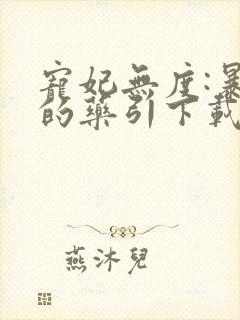 寵妃無度:暴
的藥引下載
燕沐兒